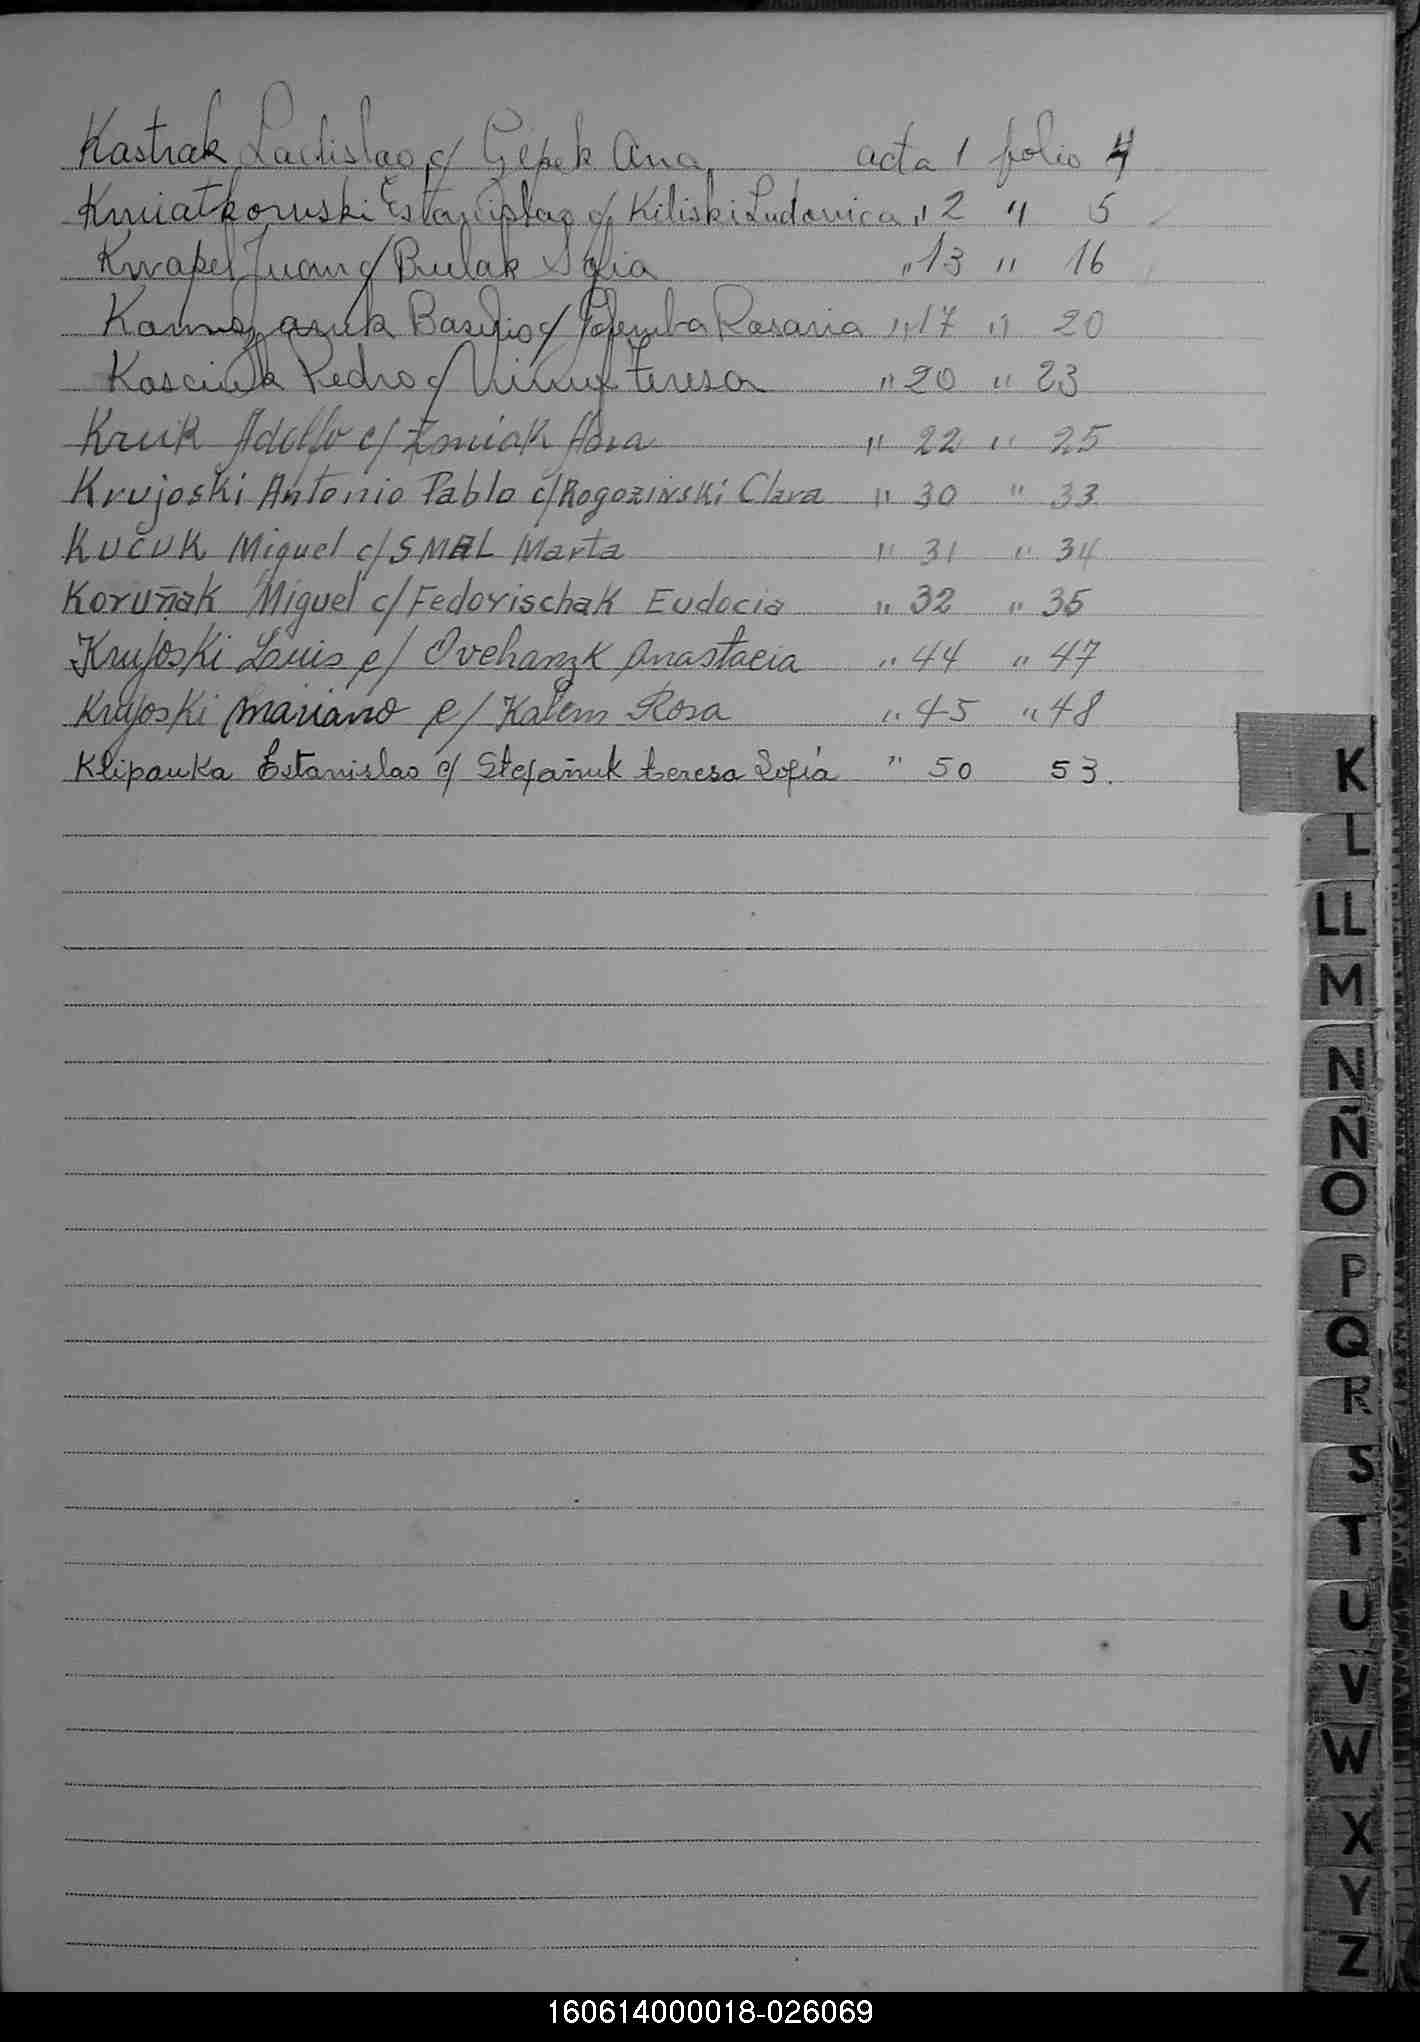 Kastrak Ladislao c/ Gepek Ana acta 1 folio 4
Kwiatkowski Estanislao c/ Kiliski Ludovica " 2 " 5
Kwapel Juan c/ Bulak Sofia " 13 " 16
Basilio c/ Rosaria " 17 " 20
Kosciuk Pedro c/ Teresa " 20 " 23
Kruk Adolfo c/ Zmiak Ana " 22 " 25
Krujoski Antonio Pablo c/ Rogozinski Clara " 30 " 33
Kučuk Miguel c/ SMAL Marta " 31 " 34
Koruñak Miguel c/ Fedorischak Eudocia " 32 " 35
Krujoski Luis c/ Ovcharzk Anastacia " 44 " 47
Krujoski Mariano c/ Kalem Rosa " 45 " 48
Klipauka Estanislao c/ Stefañuk teresa Sofía " 50 53.
K
L
LL
M
N
Ñ
O
P
Q
R
S
T
U
V
W
X
Y
Z
160614000018-026069